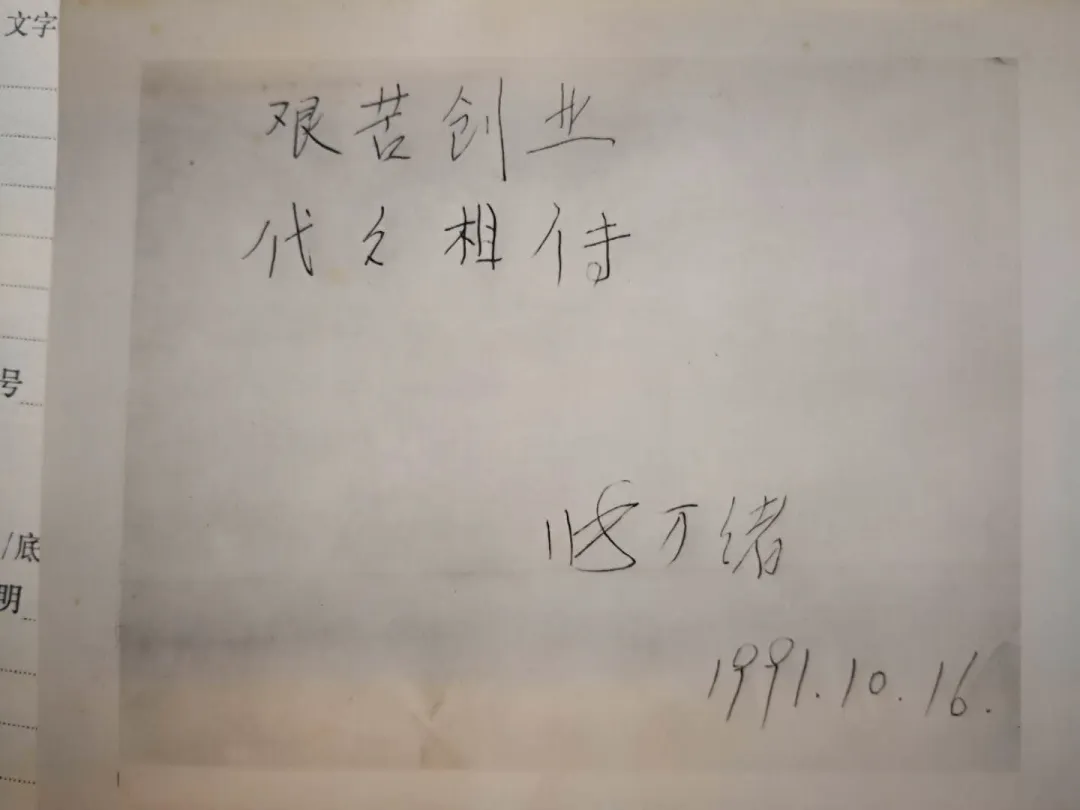 文字
号
/底
明
艰苦创业
代々相传
万绪
1991.10.16.